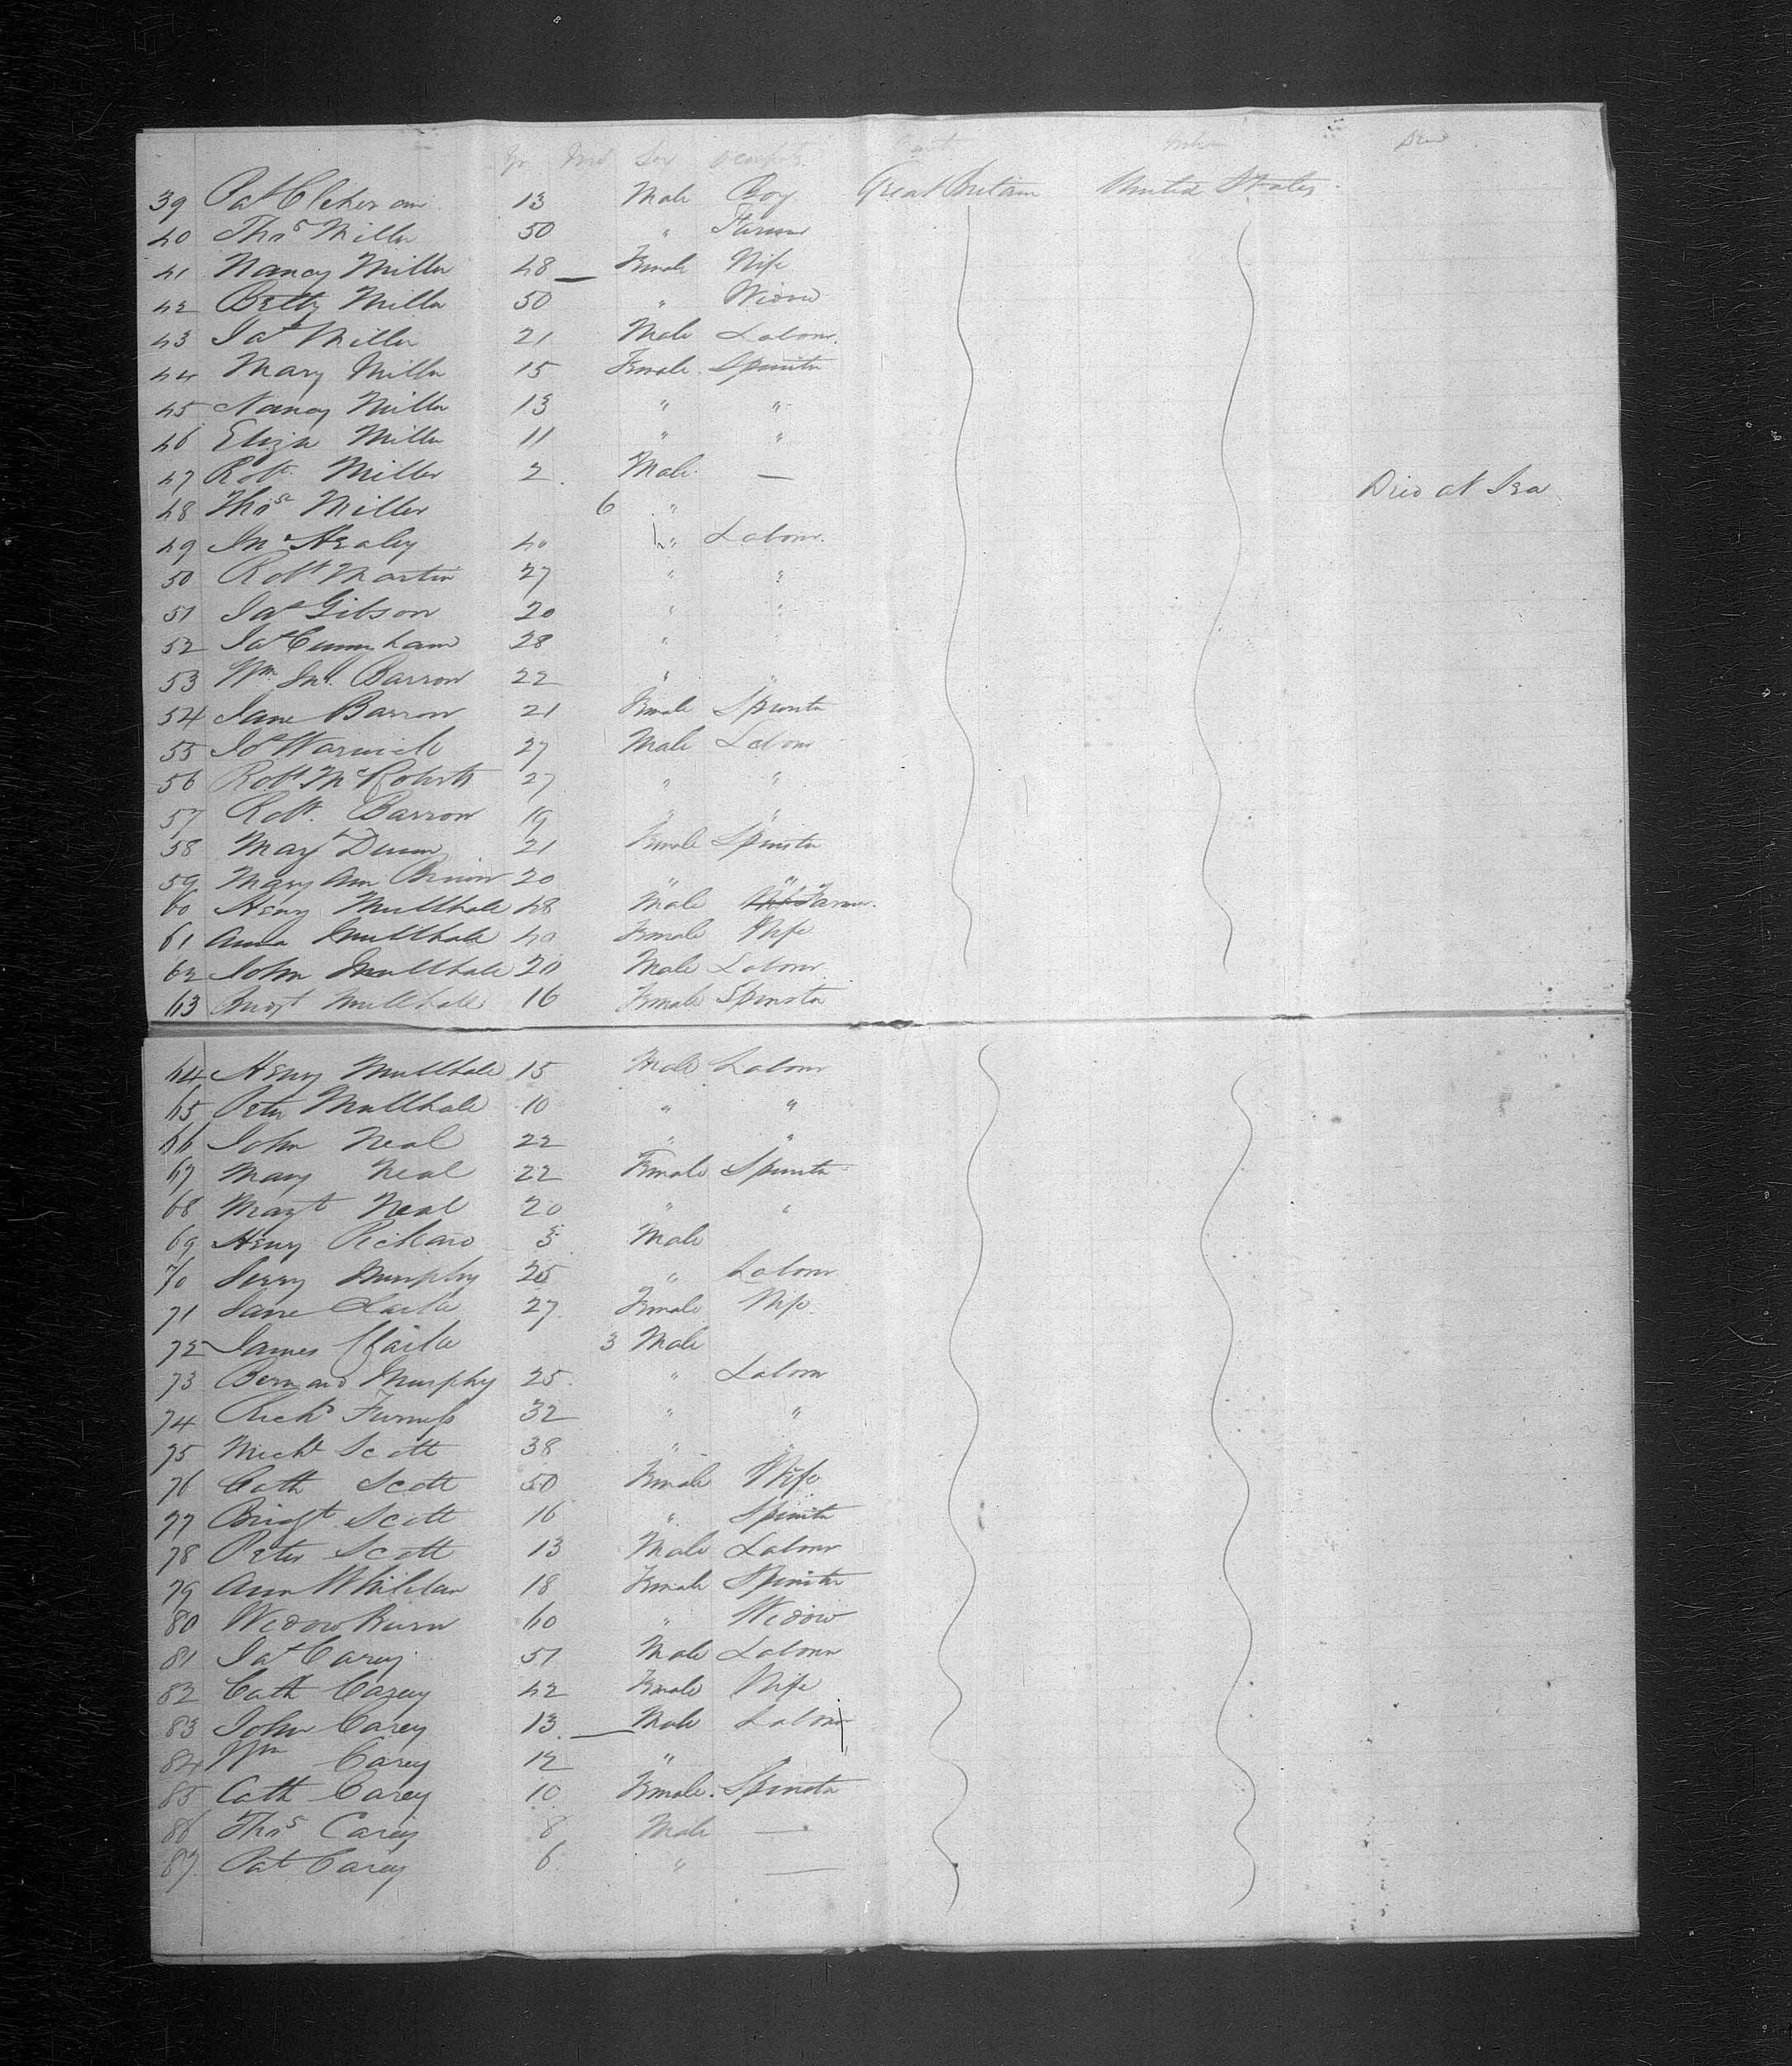 Yr Mo Sex Occupat. Died
39 Pat 13 Male Boy Great Britain United States
40 Thos Miller 50 "
41 Nancy Miller 48 Female Wife
42 Betty Miller 50 " Widow
43 Jas Miller 21 Male Labour
44 Mary Miller 15 Female Spinster
45 Nancy Miller 13 " "
46 Eliza Miller 11 " "
47 Robt. Miller 2 Male — Died at Sea
48 Thos Miller 6 "
49 Jno Healey 40 " Labour
50 Robt Martin 27 " "
51 Jas Gibson 20 " "
52 Jas 28 " "
53 Wm Jno. Barron 22 " "
54 Jane Barron 21 Female Spinster
55 Jos Warwick 27 Male Labour
56 Robt McRoberts 27 " "
57 Robt. Barron 19 " "
58 Margt Dunn 21 Female Spinster
59 Mary Ann 20 " "
60 Henry Mullhale 48 Male Farmer
61 Anna Mullhale 40 Female Wife
62 John Mullhale 20 Male Labour
63 Bridgt Mullhale 16 Female Spinster
64 Henry Mullhale 15 Male Labour
65 Peter Mullhale 10 " "
66 John Neal 22 " "
67 Mary Neal 22 Female Spinster
68 Margt Neal 20 " "
69 Henry Rickard Male
70 Jerry Murphy 25 " Labour
71 Jane 27 Female Wife
72 James 3 Male
73 Bernard Murphy 25 " Labour
74 Richd Furness 32 " "
75 Michl Scott 38 " "
76 Cath Scott 50 Female Wife
77 Bridgt Scott 16 " Spinster
78 Peter Scott 13 Male Labour
79 Ann 18 Female Spinster
80 Widow 60 " Widow
81 Jas Carey 51 Male Labour
82 Cath Carey 42 Female Wife
83 John Carey 13 Male Labour
84 Wm Carey 12 "
85 Cath Carey 10 Female Spinster
86 Thos Carey 8 Male —
87 Pat Carey 6 " —